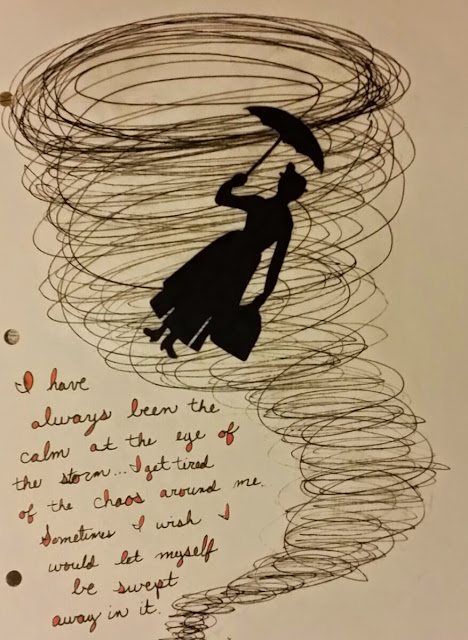 I have
always been the
calm at the eye of
the storm... I get tired
of the chaos around me.
Sometimes I wish I
would let myself
be swept
away in it.